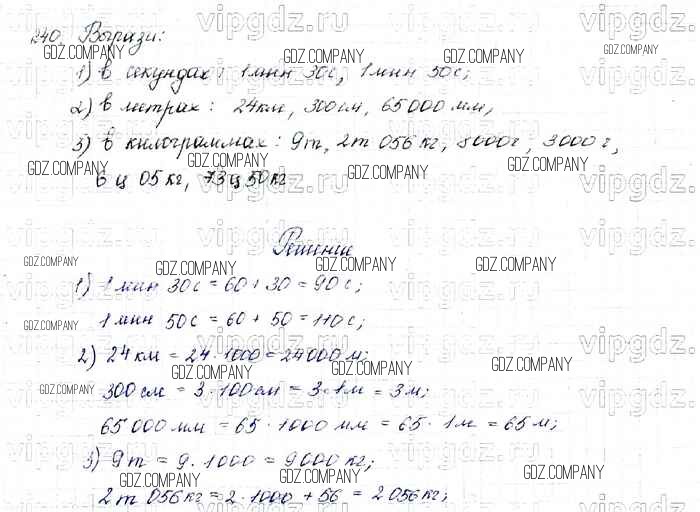 240. Вырази:
1) в секундах: 1 мин 30 с, 1 мин 50 с;
2) в метрах: 24 км, 300 см, 65 000 мм;
3) в килограммах: 9 т, 2 т 056 кг, 8000 г, 3000 г,
6 ц 05 кг, 73 ц 50 кг
Решение
1) 1 мин 30 с = 60 + 30 = 90 с;
1 мин 50 с = 60 + 50 = 110 с;
2) 24 км = 24 · 1000 = 24000 м;
300 см = 3 · 100 см = 3 · 1 м = 3 м;
65 000 мм = 65 · 1000 мм = 65 · 1 м = 65 м;
3) 9 т = 9 · 1000 = 9000 кг;
2 т 056 кг = 2 · 1000 + 56 = 2056 кг;
GDZ.COMPANY
vipgdz.ru